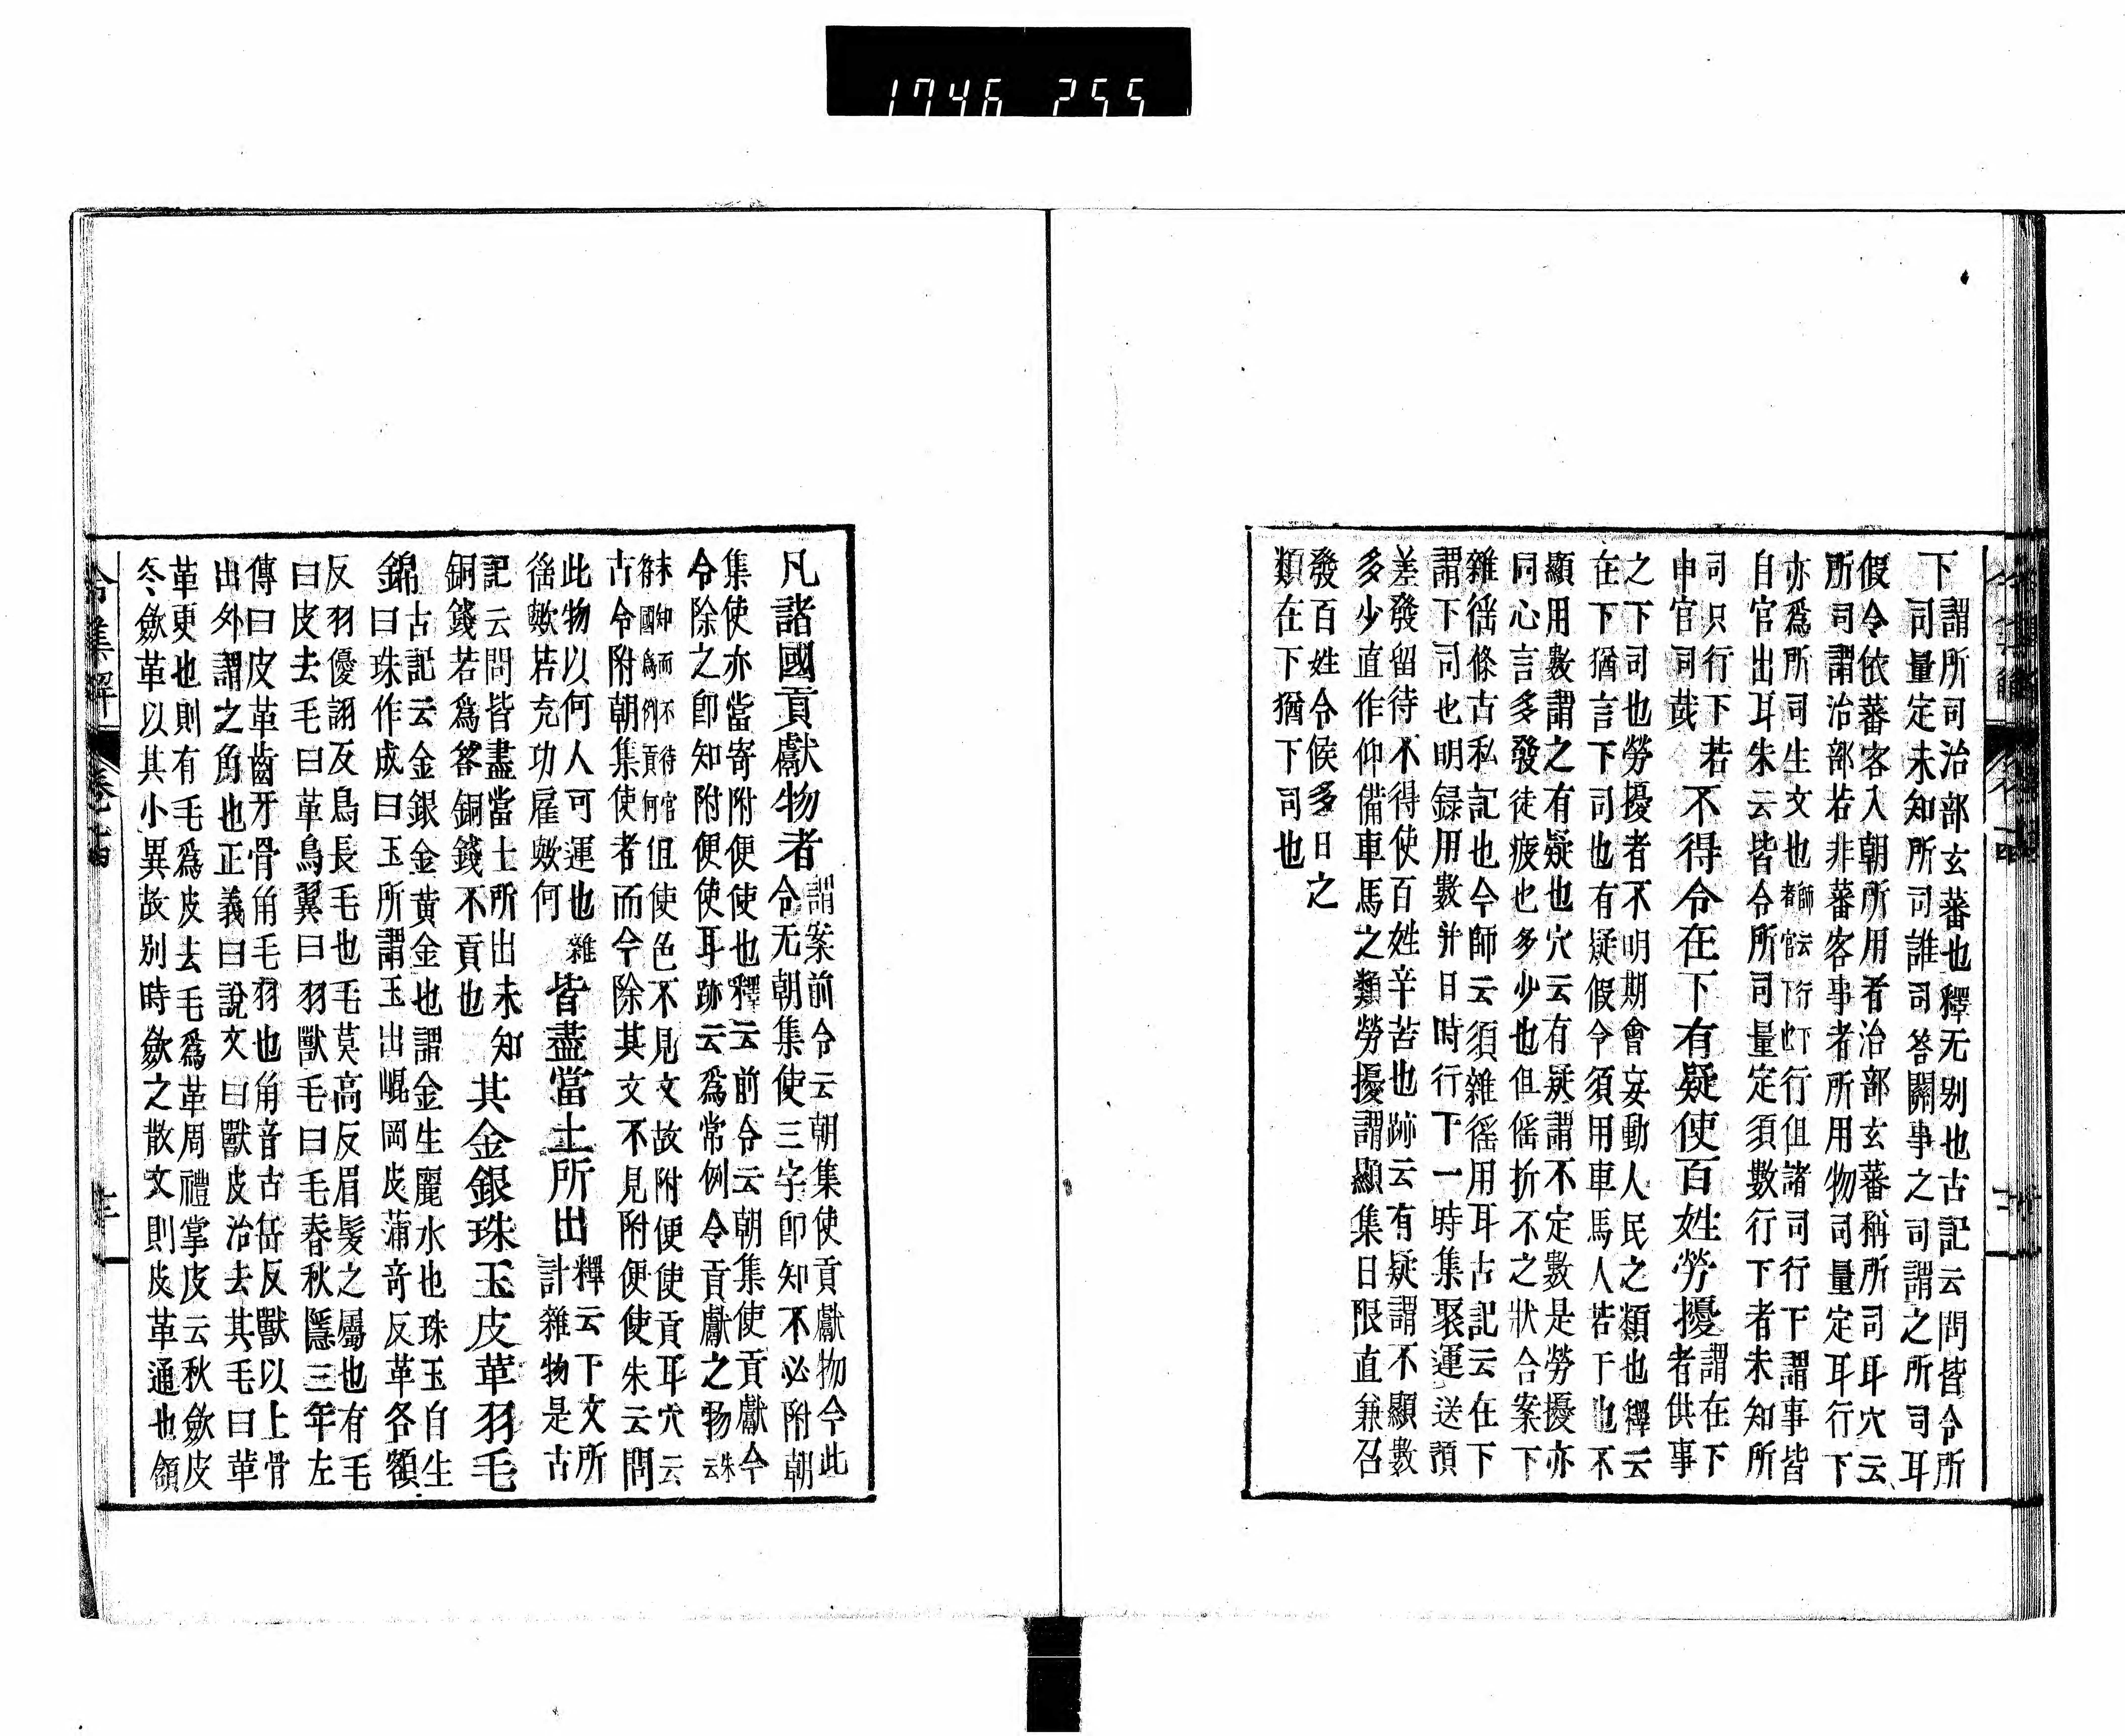 1746 255
下謂所司治部玄蕃也釋无别也古記云問皆令所
司量定未知所司誰司答闕事之司謂之所司耳
假令依蕃客入朝所用者治部玄蕃稱所司耳穴云
所司謂治部若非蕃客事者所用物司量定耳行下
亦爲所司生文也師云行下者官下也行但諸司行下謂事皆
自官出耳朱云皆令所司量定須數行下者未知所
司只行下若
申官同哉
不得令在下有疑使百姓勞擾謂在下者供事
之下司也勞擾者不明期會妄動人民之類也釋云
在下猶言下司也有疑假令須用車馬人若干也不
顯用數謂之有疑也穴云有疑謂不定數是勞擾亦
同心言多發徒疲也多少也但徭折不之狀合案下
雜徭條古私記也今師云須雜徭用耳古記云在下
謂下司也明録用數并日時行下一時集聚運送預
差發留待不得使百姓辛苦也跡云有疑謂不顯數
多少直作仰備車馬之類勞擾謂顯集日限直兼召
發百姓令候多日之
類在下猶下司也
凡諸國貢獻物者謂案前令云朝集使貢獻物今此
令无朝集使三字即知不必附朝
集使亦當寄附便使也釋云前令云朝集使貢獻今
令除之即知附便使耳跡云爲常例令貢獻之物朱云
未知而不待官符國爲例貢何但使色不見文故附便使貢耳穴云
古令附朝集使者而今除其文不見附便使朱云問
此物以何人可運也雜
徭歟若充功雇歟何
皆盡當土所出釋云下文所
計雜物是古
記云問皆盡當土所出未知
銅錢若爲答銅錢不貢也
其金銀珠玉皮革羽毛
錦古記云金銀金黄金也謂金生麗水也珠玉自生
曰珠作成曰玉所謂玉出崐岡皮蒲奇反革各額
反羽優詡反鳥長毛也毛莫高反眉髮之屬也有毛
曰皮去毛曰革鳥翼曰羽獸毛曰毛春秋隱三年左
傳曰皮革齒牙骨角毛羽也角音古岳反獸以上骨
出外謂之角也正義曰說文曰獸皮治去其毛曰革
革更也則有毛爲皮去毛爲革周禮掌皮云秋斂皮
冬斂革以其小異故别時斂之散文則皮革通也領
令集解 卷廿四